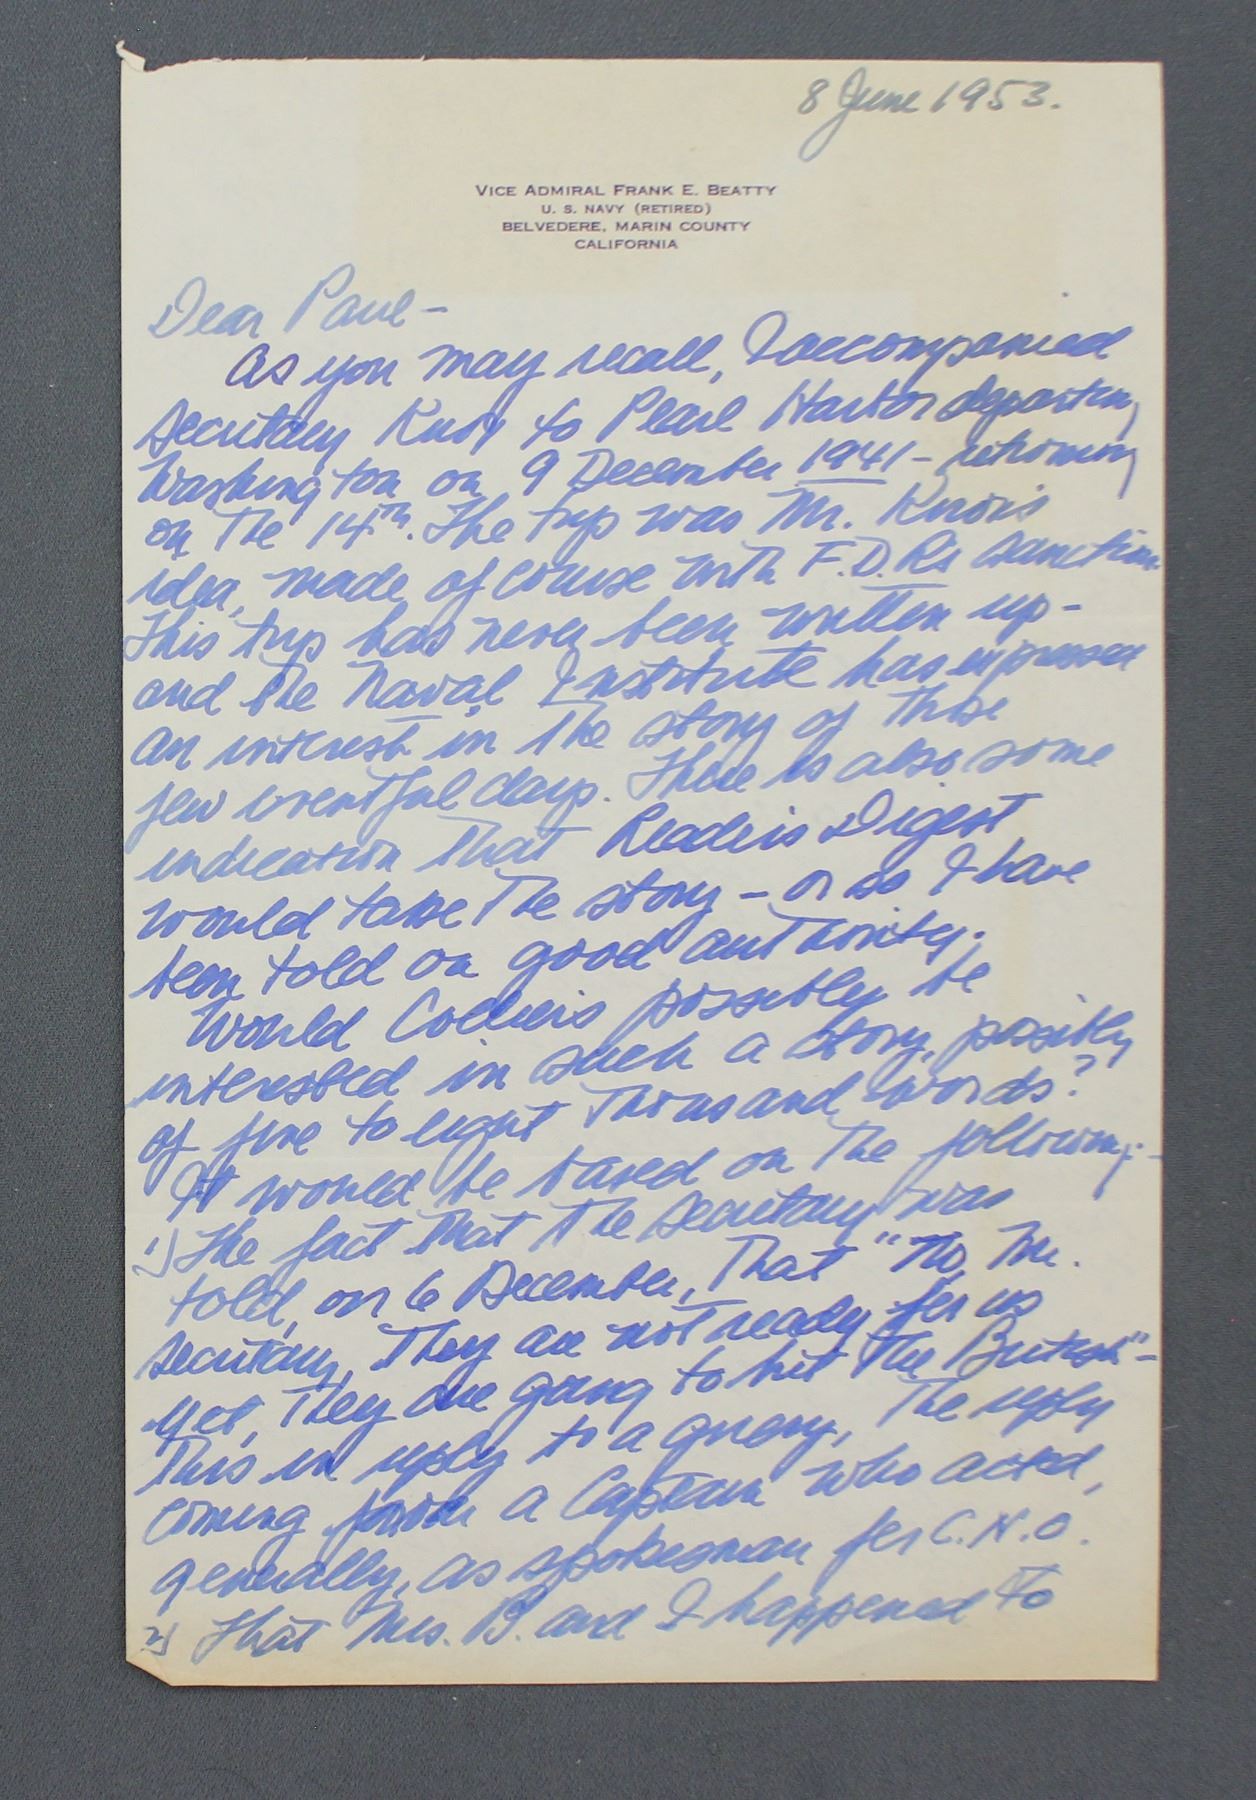 8 June 1953.
VICE ADMIRAL FRANK E. BEATTY
U. S. NAVY (RETIRED)
BELVEDERE, MARIN COUNTY
CALIFORNIA
Dear Paul –
As you may recall, I accompanied
Secretary Knox to Pearl Harbor departing
Washington on 9 December 1941 – returning
on the 14th. The trip was Mr. Knox's
idea, made of course with F.D.R's sanction
This trip has never been written up –
and the Naval Institute has expressed
an interest in the story of those
few eventful days. There is also some
indication that Reader's Digest
would take the story – or so I have
been told on good authority.
Would Collier's possibly be
interested in such a story, possibly
of five to eight thousand words?
It would be based on the following:–
1) The fact that the Secretary was
told, on 6 December, that "No, Mr.
Secretary, they are not ready for us
yet, they are going to hit the British" –
This in reply to a query, the reply
coming from a Captain who acted,
generally, as spokesman for C.N.O.
2) That Mrs. B. and I happened to